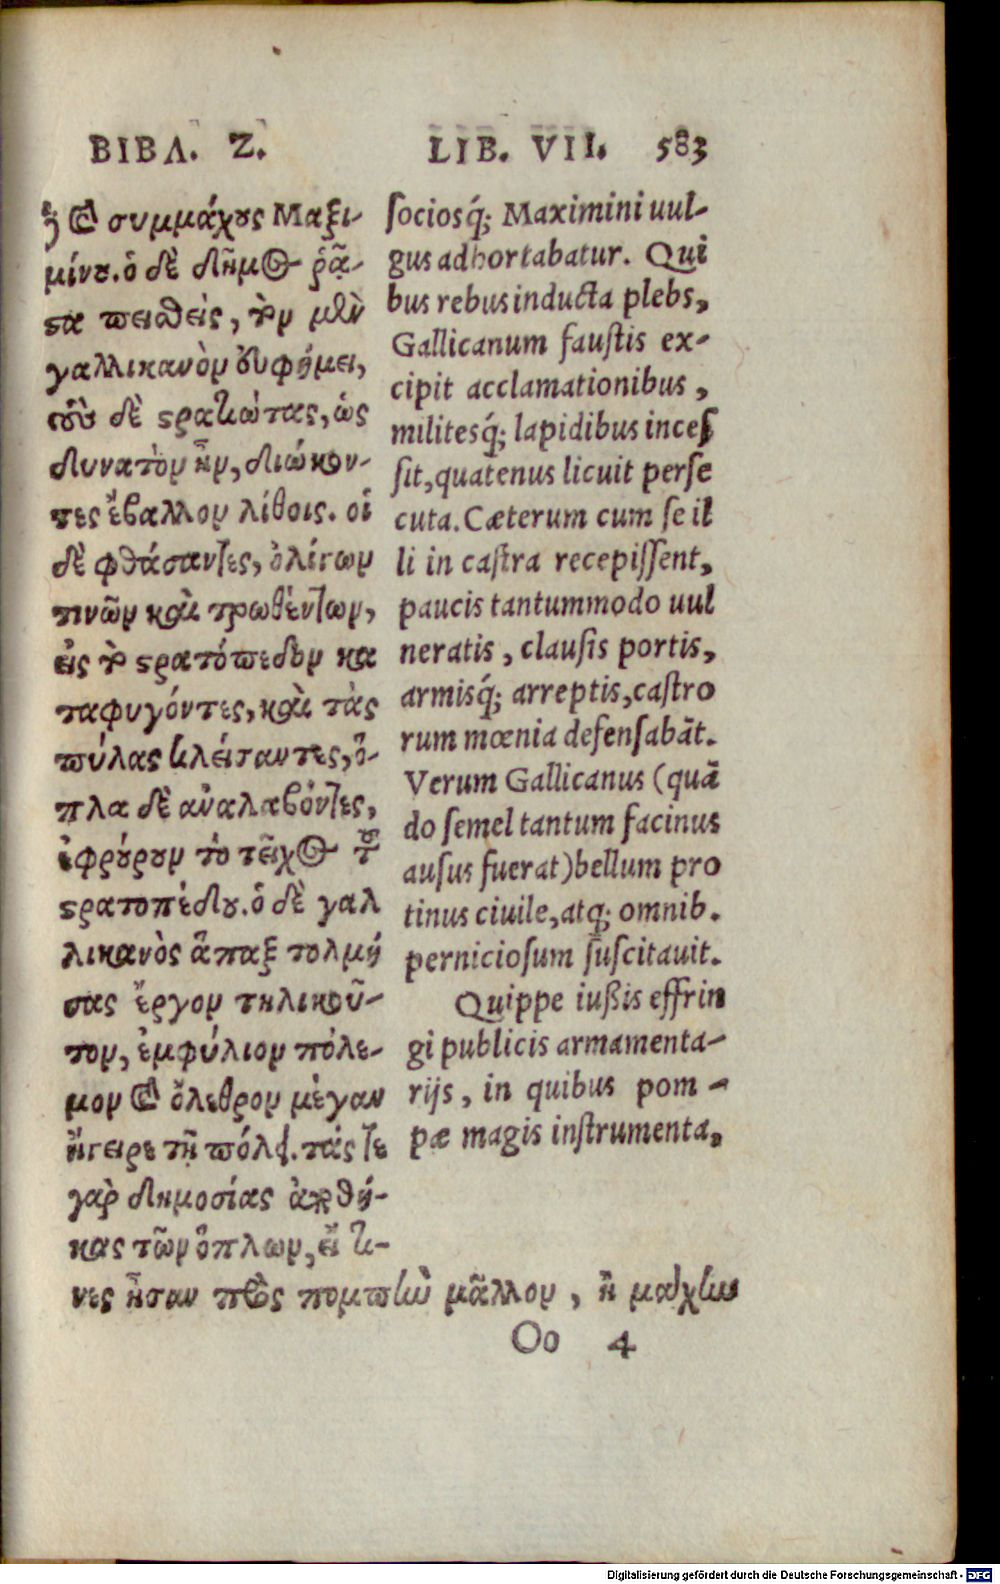 ΒΙΒΛ. Ζ.
ς καὶ συμμάχους Μαξι-
μίνου. ὁ δὲ δῆμος ῥᾷ-
στα πειθεὶς, τὸν μὲν
γαλλικανὸν εὐφήμει,
τοὺς δὲ στρατιώτας, ὡς
δυνατὸν ἦν, διώκον-
τες ἔβαλλον λίθοις. οἱ
δὲ φθάσαντες, ὀλίγων
τινῶν καὶ τρωθέντων,
εἰς τὸ στρατόπεδον κα
ταφυγόντες, καὶ τὰς
πύλας κλείσαντες, ὅ-
πλα δὲ ἀναλαβόντες,
ἐφρούρουν τὸ τεῖχος τοῦ
στρατοπέδου. ὁ δὲ γαλ
λικανὸς ἅπαξ τολμή
σας ἔργον τηλικοῦ-
τον, ἐμφύλιον πόλε-
μον καὶ ὄλεθρον μέγαν
ἤγειρε τῇ πόλει. τάς τε
γὰρ δημοσίας ἀποθή-
κας τῶν ὅπλων, εἴ τι-
νες ἦσαν πρὸς πομπὴν μᾶλλον, ἢ μάχην
LIB. VII. 583
sociosq́; Maximini uul-
gus adhortabatur. Qui
bus rebus inducta plebs,
Gallicanum faustis ex-
cipit acclamationibus,
militesq́; lapidibus inces
sit, quatenus licuit perse
cuta. Cæterum cum se il
li in castra recepissent,
paucis tantummodo uul
neratis, clausis portis,
armisq́; arreptis, castro
rum mœnia defensabāt.
Verum Gallicanus (quā
do semel tantum facinus
ausus fuerat) bellum pro
tinus ciuile, atq; omnib.
perniciosum suscitauit.
Quippe iußis effrin
gi publicis armamenta-
rijs, in quibus pom-
pæ magis instrumenta,
Oo 4
Digitalisierung gefördert durch die Deutsche Forschungsgemeinschaft - DFG